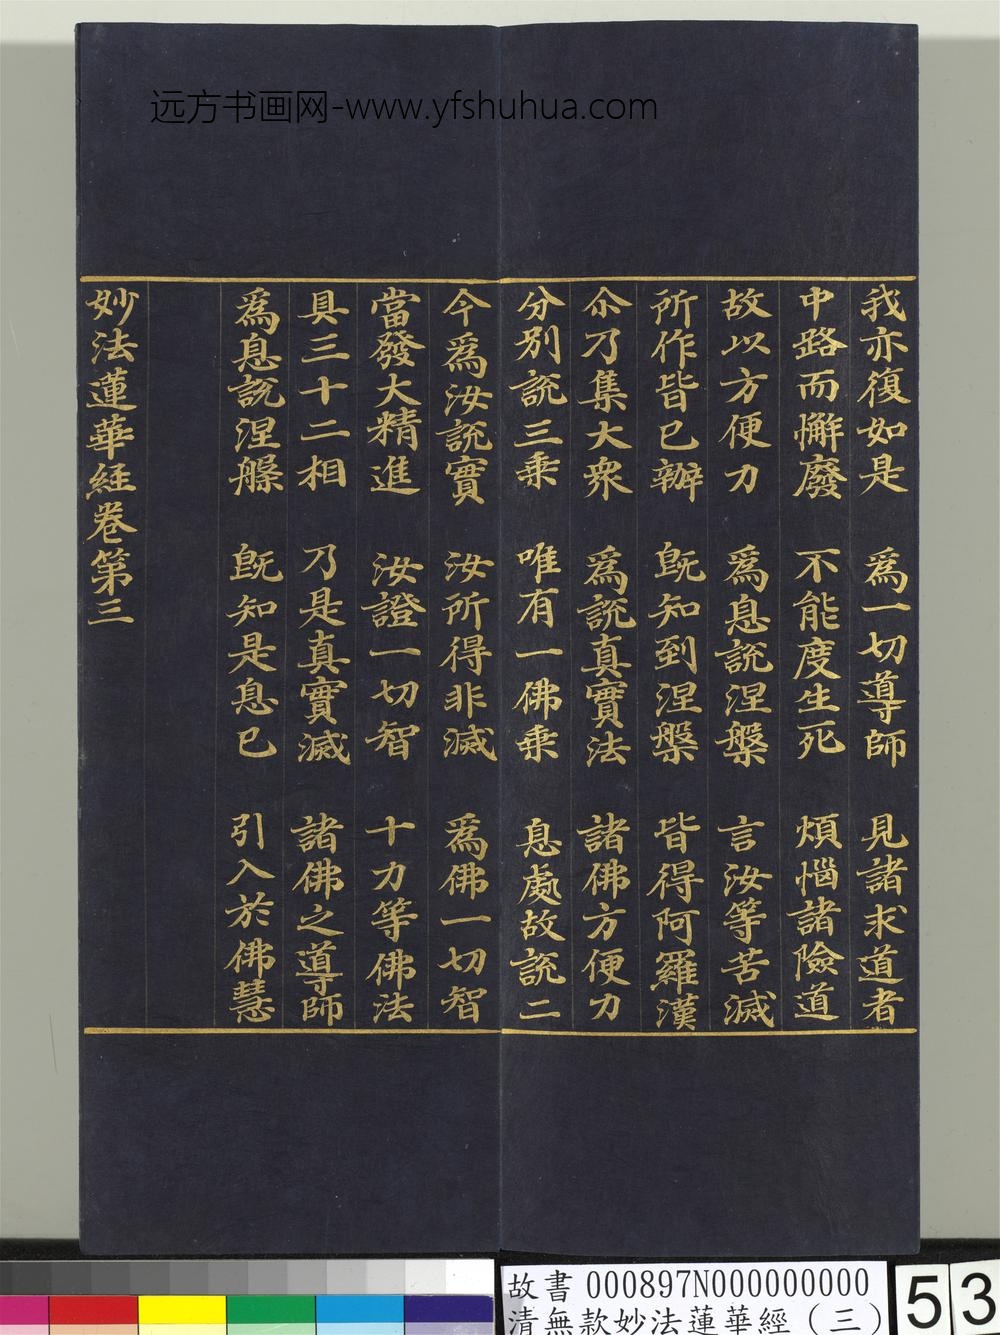 远方书画网-www.yfshuhua.com
我亦復如是 為一切導師 見諸求道者
中路而懈廢 不能度生死 煩惱諸險道
故以方便力 為息說涅槃 言汝等苦滅
所作皆已辦 既知到涅槃 皆得阿羅漢
尒乃集大衆 為說真實法 諸佛方便力
分別說三乘 唯有一佛乘 息處故說二
今為汝說實 汝所得非滅 為佛一切智
當發大精進 汝證一切智 十力等佛法
具三十二相 乃是真實滅 諸佛之導師
為息說涅槃 既知是息已 引入於佛慧
妙法蓮華經卷第三
故書 000897N000000000
清無款妙法蓮華經（三）
53